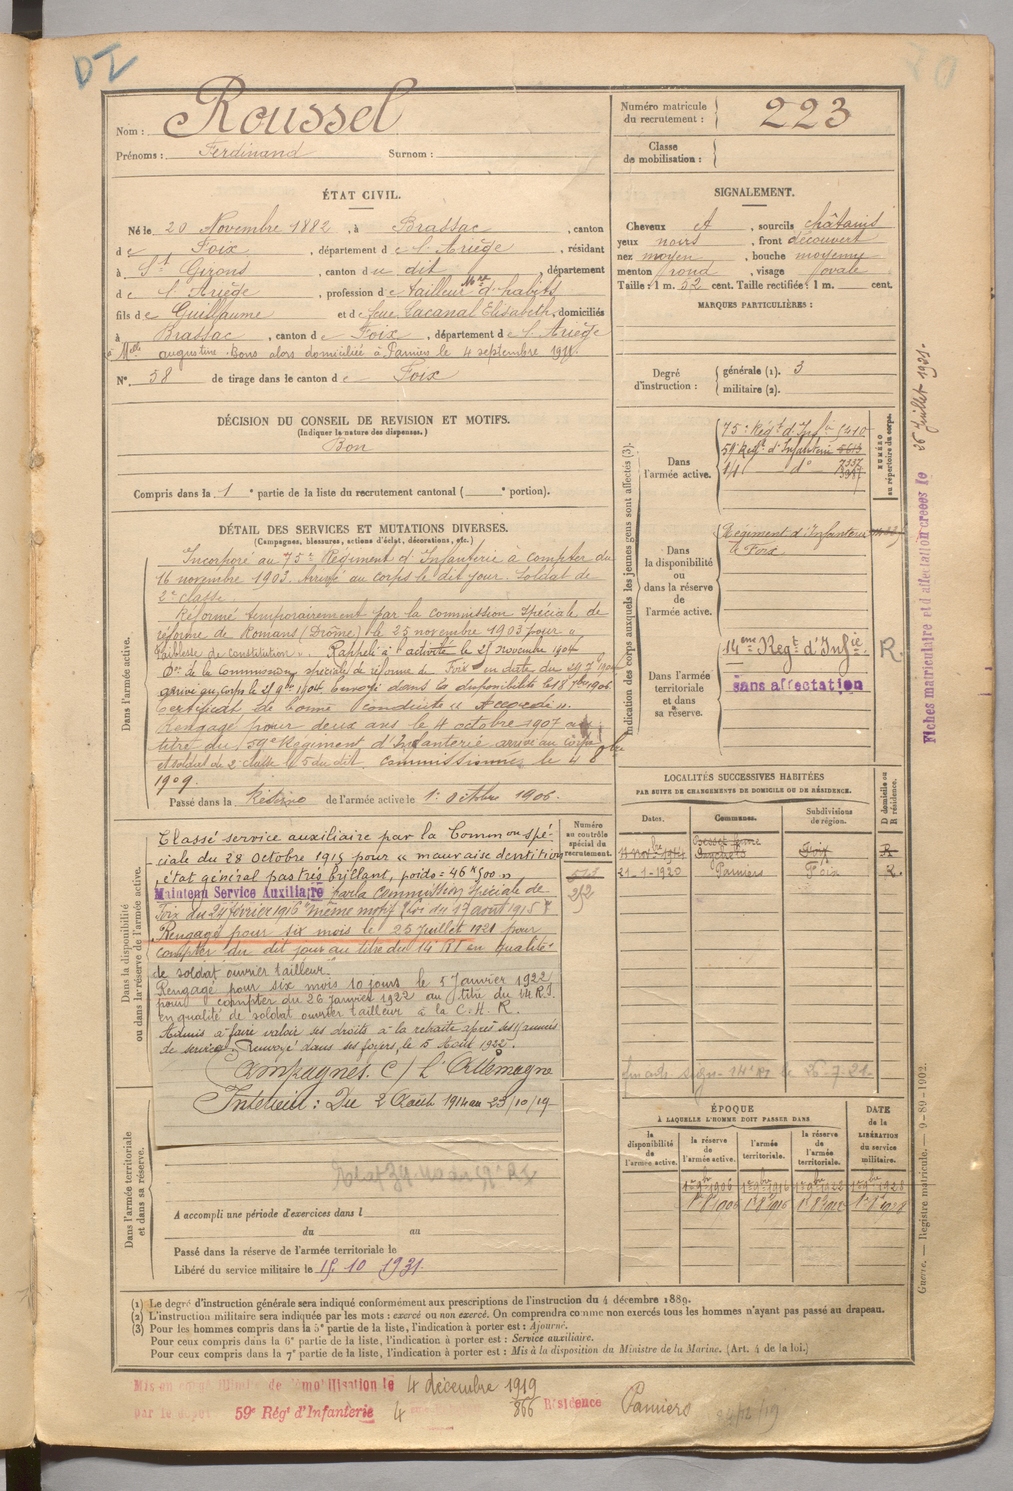 DI
Nom : Roussel
Prénoms : Ferdinand Surnom :
Numéro matricule du recrutement : 223
Classe de mobilisation :
ÉTAT CIVIL.
Né le 20 Novembre 1882, à Brassac, canton
de Foix, département de l'Ariège, résidant
à St Girons, canton du dit, département
de l'Ariège, profession de tailleur d'habits
fils de Guillaume et de feue Lacanal Elisabeth, domiciliés
à Brassac, canton de Foix, département de l'Ariège
augustine Bons alors domiciliée à Pamiers le 4 septembre
N° 58 de tirage dans le canton de Foix
SIGNALEMENT.
Cheveux et, sourcils châtains
yeux noirs, front découvert
nez moyen, bouche moyenne
menton rond, visage ovale
Taille : 1 m. 52 cent. Taille rectifiée : 1 m. cent.
MARQUES PARTICULIÈRES :
Degré d'instruction : générale (1). 3
militaire (2).
DÉCISION DU CONSEIL DE REVISION ET MOTIFS.
(Indiquer la nature des dispenses.)
Bon
Compris dans la 1e partie de la liste du recrutement cantonal ( e portion).
DÉTAIL DES SERVICES ET MUTATIONS DIVERSES.
(Campagnes, blessures, actions d'éclat, décorations, etc.)
Dans l'armée active.
Incorporé au 75e Régiment d'Infanterie à compter du
16 novembre 1903. Arrivé au corps le dit jour. Soldat de
2e classe.
Réformé temporairement par la commission spéciale de
réforme de Romans (Drôme) le 23 novembre 1903 pour
faiblesse de constitution ». Rappelé à activité le 25 novembre 1904
Don de la Commission spéciale de réforme de Foix en date du
arrivé au corps le 1904. Envoyé dans la disponibilité le 18 7bre 1906
Certificat de bonne conduite « Accordé ».
Rengagé pour deux ans le 4 octobre 1907 au
titre du 59e Régiment d'Infanterie, arrivé au corps
et soldat de 2e classe le 5 du dit. Commissionné le 4 8bre
1909.
Passé dans la Réserve de l'armée active le 1er octobre 1906.
Dans la disponibilité ou dans la réserve de l'armée active.
Classé service auxiliaire par la Common spé-
ciale du 28 octobre 1915 pour « mauvaise dentition
état général pas très brillant, poids = 46 k 500 »
Maintenu Service Auxiliaire par la Commission Spéciale de
Foix du 24 février 1916 même motif (Loi du 17 août 1915)
Rengagé pour six mois le 25 Juillet 1921 pour
compter du dit jour au titre du 14e RI en qualité
de soldat ouvrier tailleur.
Rengagé pour six mois 10 jours le 5 Janvier 1922
pour compter du 26 Janvier 1922 au titre du 14 R.I.
en qualité de soldat ouvrier tailleur à la C.H.R.
Admis à faire valoir ses droits à la retraite après ses 15 années
de services, renvoyé dans ses foyers, le 5 Août 1922.
Campagnes. C/ l'Allemagne
Intérieur : Du 2 Août 1914 au 23/10/19
Numéro au contrôle spécial du recrutement.
212
Dans l'armée territoriale et dans sa réserve.
A accompli une période d'exercices dans l
du au
Passé dans la réserve de l'armée territoriale le
Libéré du service militaire le 15 10 1931.
Indication des corps auxquels les jeunes gens sont affectés (3).
Dans l'armée active.
75e Régt d'Infie 5410
59e Regt d'Infanterie 5613
do 7337
NUMÉRO au répertoire du corps.
Dans la disponibilité ou dans la réserve de l'armée active.
Régiment d'Infanterie
à Foix
Dans l'armée territoriale et dans sa réserve.
14eme Regt d'Infie
R.
sans affectation
Fiches matriculaire et d'affectation créées le 26 juillet 1921.
LOCALITÉS SUCCESSIVES HABITÉES
PAR SUITE DE CHANGEMENTS DE DOMICILE OU DE RÉSIDENCE.
Dates. Communes. Subdivisions de région. D domicile ou R résidence.
Foix R
21-1-1920 Pamiers Foix R.
14e RI le 26-7-21-
ÉPOQUE
À LAQUELLE L'HOMME DOIT PASSER DANS
la disponibilité de l'armée active.
la réserve de l'armée active.
l'armée territoriale.
la réserve de l'armée territoriale.
DATE de la LIBÉRATION du service militaire.
Guerre. — Registre matricule. — 9-89-1902.
(1) Le degré d'instruction générale sera indiqué conformément aux prescriptions de l'instruction du 4 décembre 1889.
(2) L'instruction militaire sera indiquée par les mots : exercé ou non exercé. On comprendra comme non exercés tous les hommes n'ayant pas passé au drapeau.
(3) Pour les hommes compris dans la 5e partie de la liste, l'indication à porter est : Ajourné.
Pour ceux compris dans la 6e partie de la liste, l'indication à porter est : Service auxiliaire.
Pour ceux compris dans la 7e partie de la liste, l'indication à porter est : Mis à la disposition du Ministre de la Marine. (Art. 4 de la loi.)
Mis en congé illimité de démobilisation le 4 décembre 1919
par le dépôt 59e Régt d'Infanterie 4 866 Résidence Pamiers